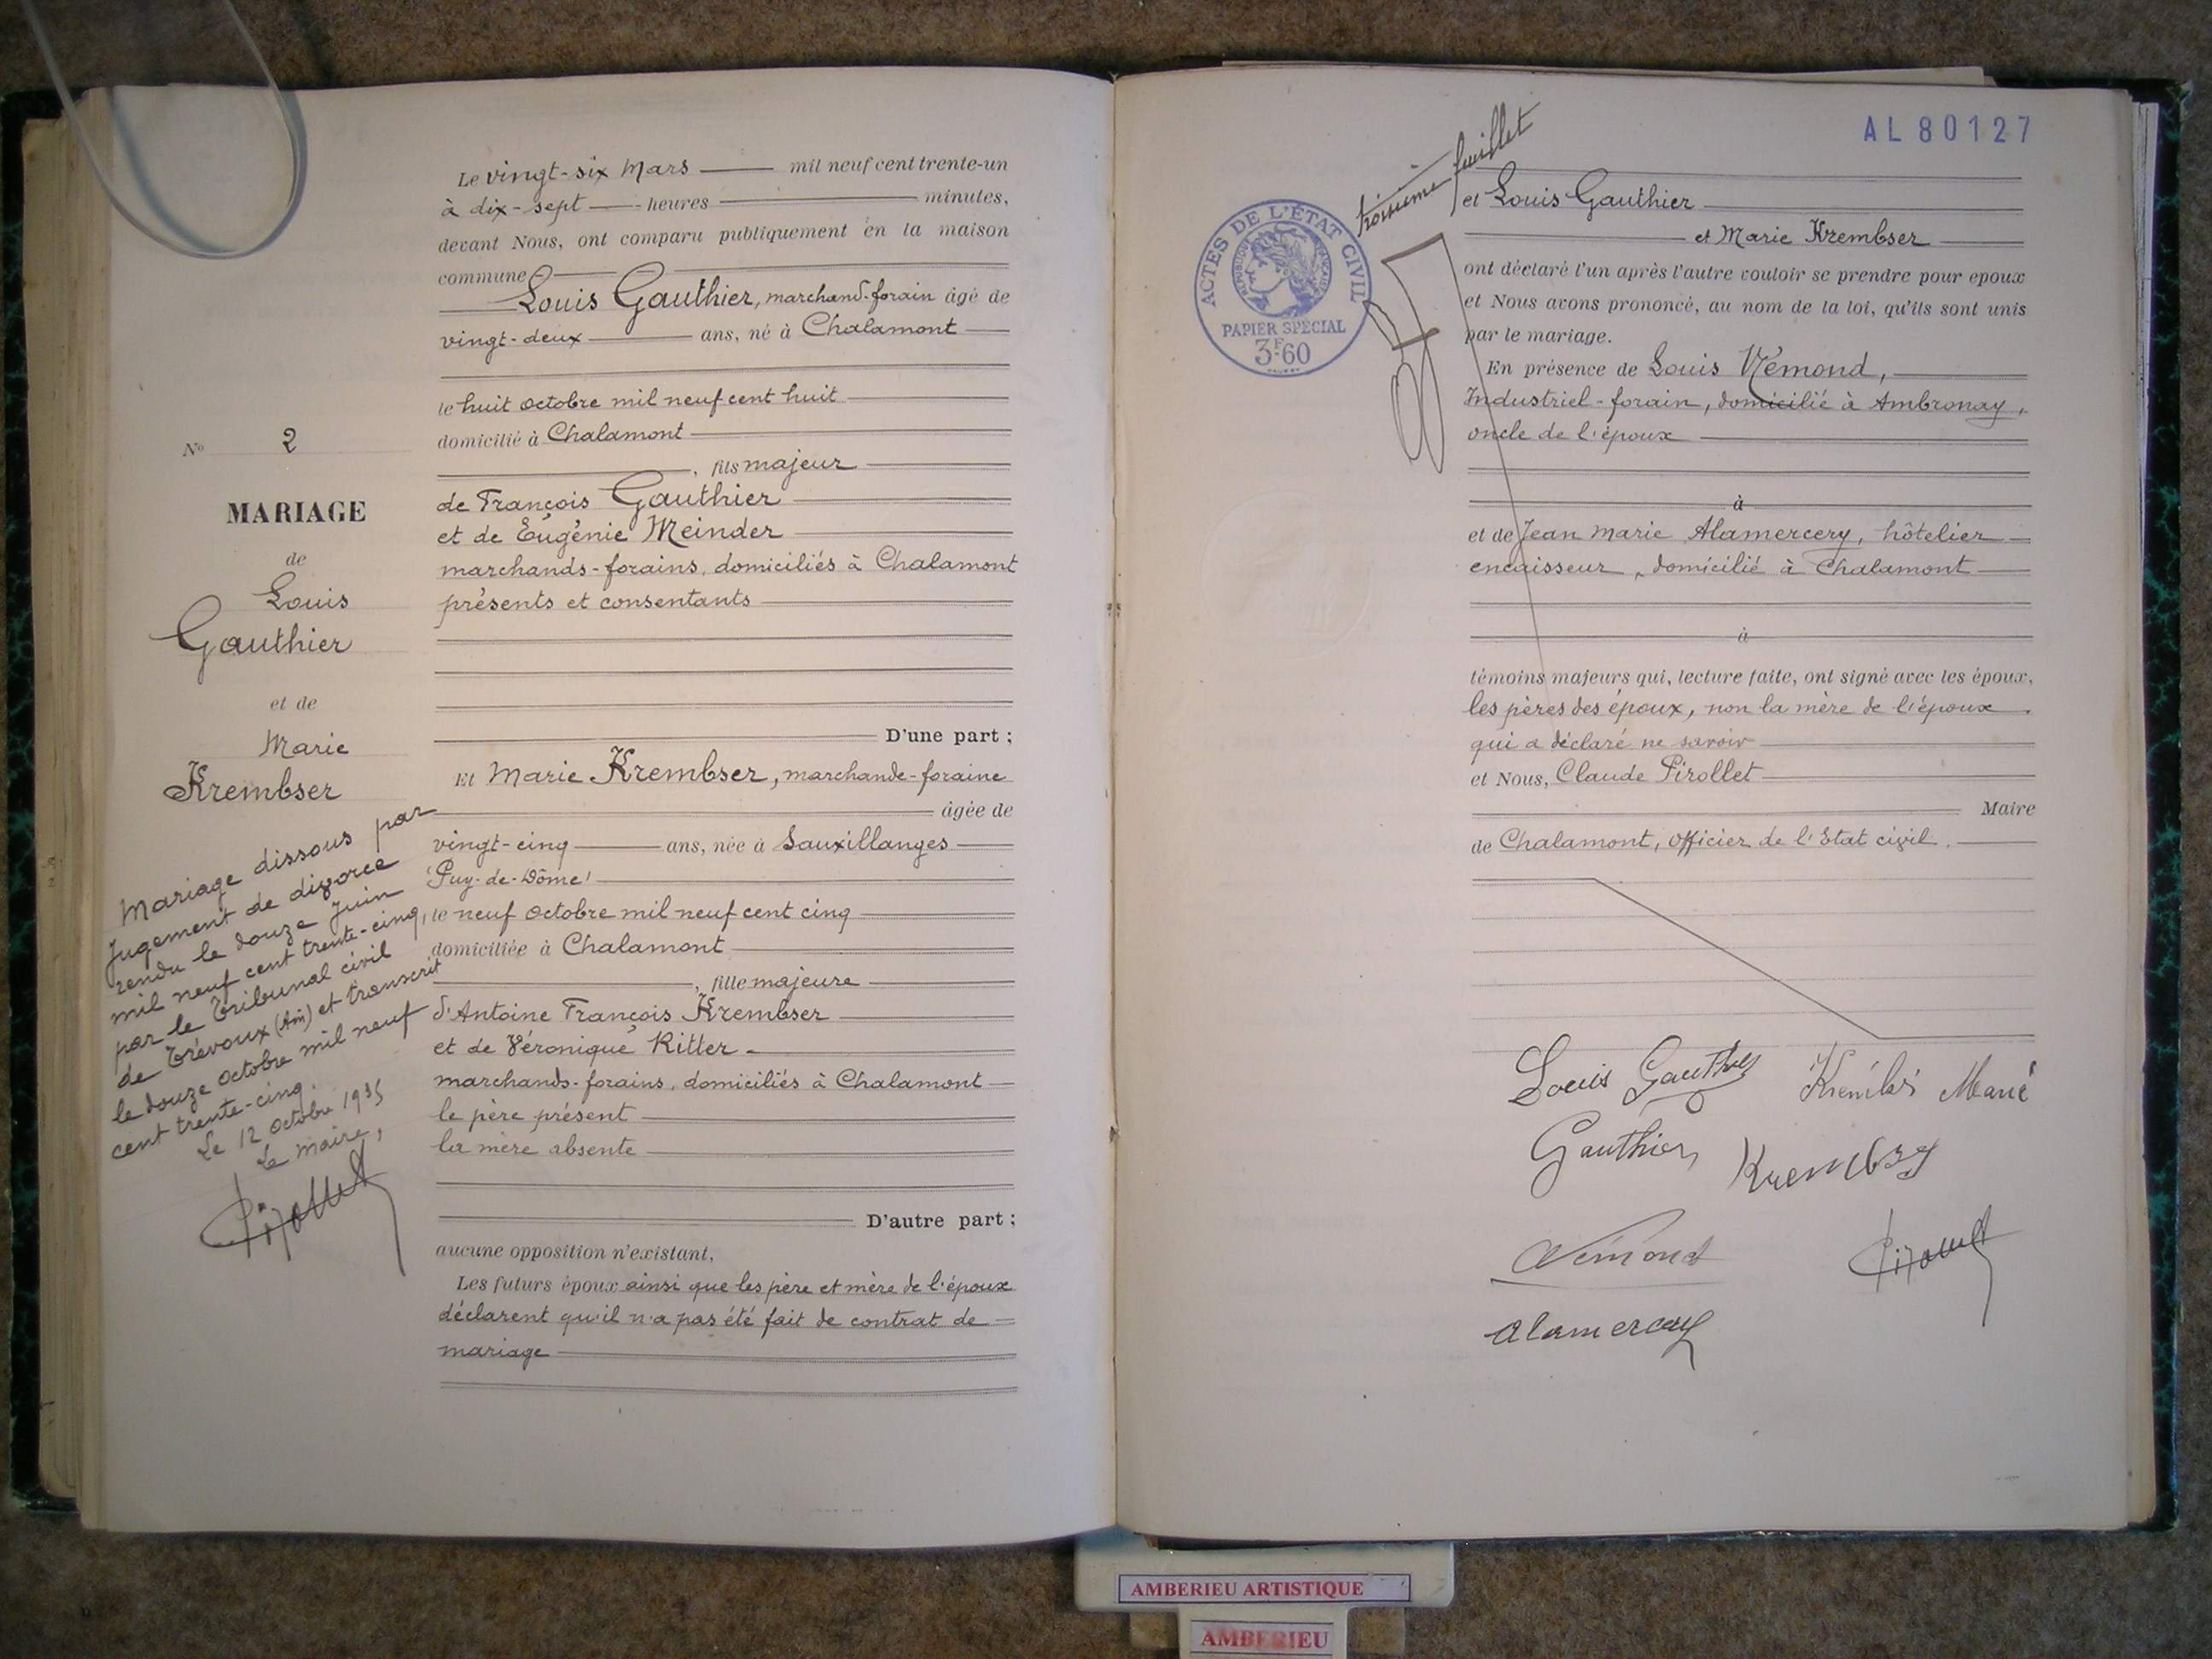 Le vingt-six Mars mil neuf cent trente-un
à dix-sept heures minutes,
devant Nous, ont comparu publiquement en la maison
commune
Louis Gauthier, marchand-forain âgé de
vingt-deux ans, né à Chalamont
le huit octobre mil neuf cent huit
domicilié à Chalamont
, fils majeur
de François Gauthier
et de Eugénie Meinder
marchands-forains, domiciliés à Chalamont
présents et consentants
D'une part ;
Et Marie Krembser, marchande-foraine
âgée de
vingt-cinq ans, née à Sauxillanges
(Puy-de-Dôme)
le neuf octobre mil neuf cent cinq
domiciliée à Chalamont
, fille majeure
d'Antoine François Krembser
et de Véronique Ritter
marchands-forains, domiciliés à Chalamont
le père présent
la mère absente
D'autre part ;
aucune opposition n'existant,
Les futurs époux ainsi que les père et mère de l'époux
déclarent qu'il n'a pas été fait de contrat de
mariage
No 2
MARIAGE
de
Louis
Gauthier
et de
Marie
Krembser
Mariage dissous par
Jugement de divorce
rendu le douze Juin
mil neuf cent trente-cinq,
par le Tribunal civil
de Trévoux (Ain) et transcrit
le douze octobre mil neuf
cent trente-cinq.
Le 12 octobre 1935
Le Maire,
Pirollet
AL 80127
troisième feuillet
ACTES DE L'ÉTAT CIVIL
PAPIER SPÉCIAL
3F.60
et Louis Gauthier
et Marie Krembser
ont déclaré l'un après l'autre vouloir se prendre pour epoux
et Nous avons prononcé, au nom de la loi, qu'ils sont unis
par le mariage.
En présence de Louis Némond,
Industriel-forain, domicilié à Ambronay,
oncle de l'époux
à
et de Jean Marie Alamercery, hôtelier
encaisseur, domicilié à Chalamont
à
témoins majeurs qui, lecture faite, ont signé avec les époux,
les pères des époux, non la mère de l'époux
qui a déclaré ne savoir
et Nous, Claude Pirollet
Maire
de Chalamont, officier de l'Etat civil.
Louis Gauthier
Marie
Gauthier
Némond
Pirollet
Alamercery
AMBERIEU ARTISTIQUE
AMBERIEU